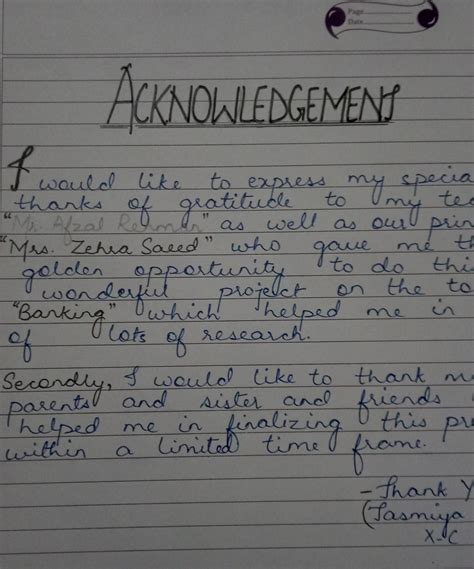 Page
Date
ACKNOWLEDGEMENT
I would like to express my specia
thanks of gratitude to my tea
"Mr. Afzal Rehman" as well as our prin
"Mrs. Zehra Saeed" who gave me th
golden opportunity to do this
wonderful project on the to
"Banking" which helped me in
of lots of research.
Secondly, I would like to thank m
parents and sister and friends
helped me in finalizing this pr
within a limited time frame.
- Thank Y
(Tasmiya
X-C